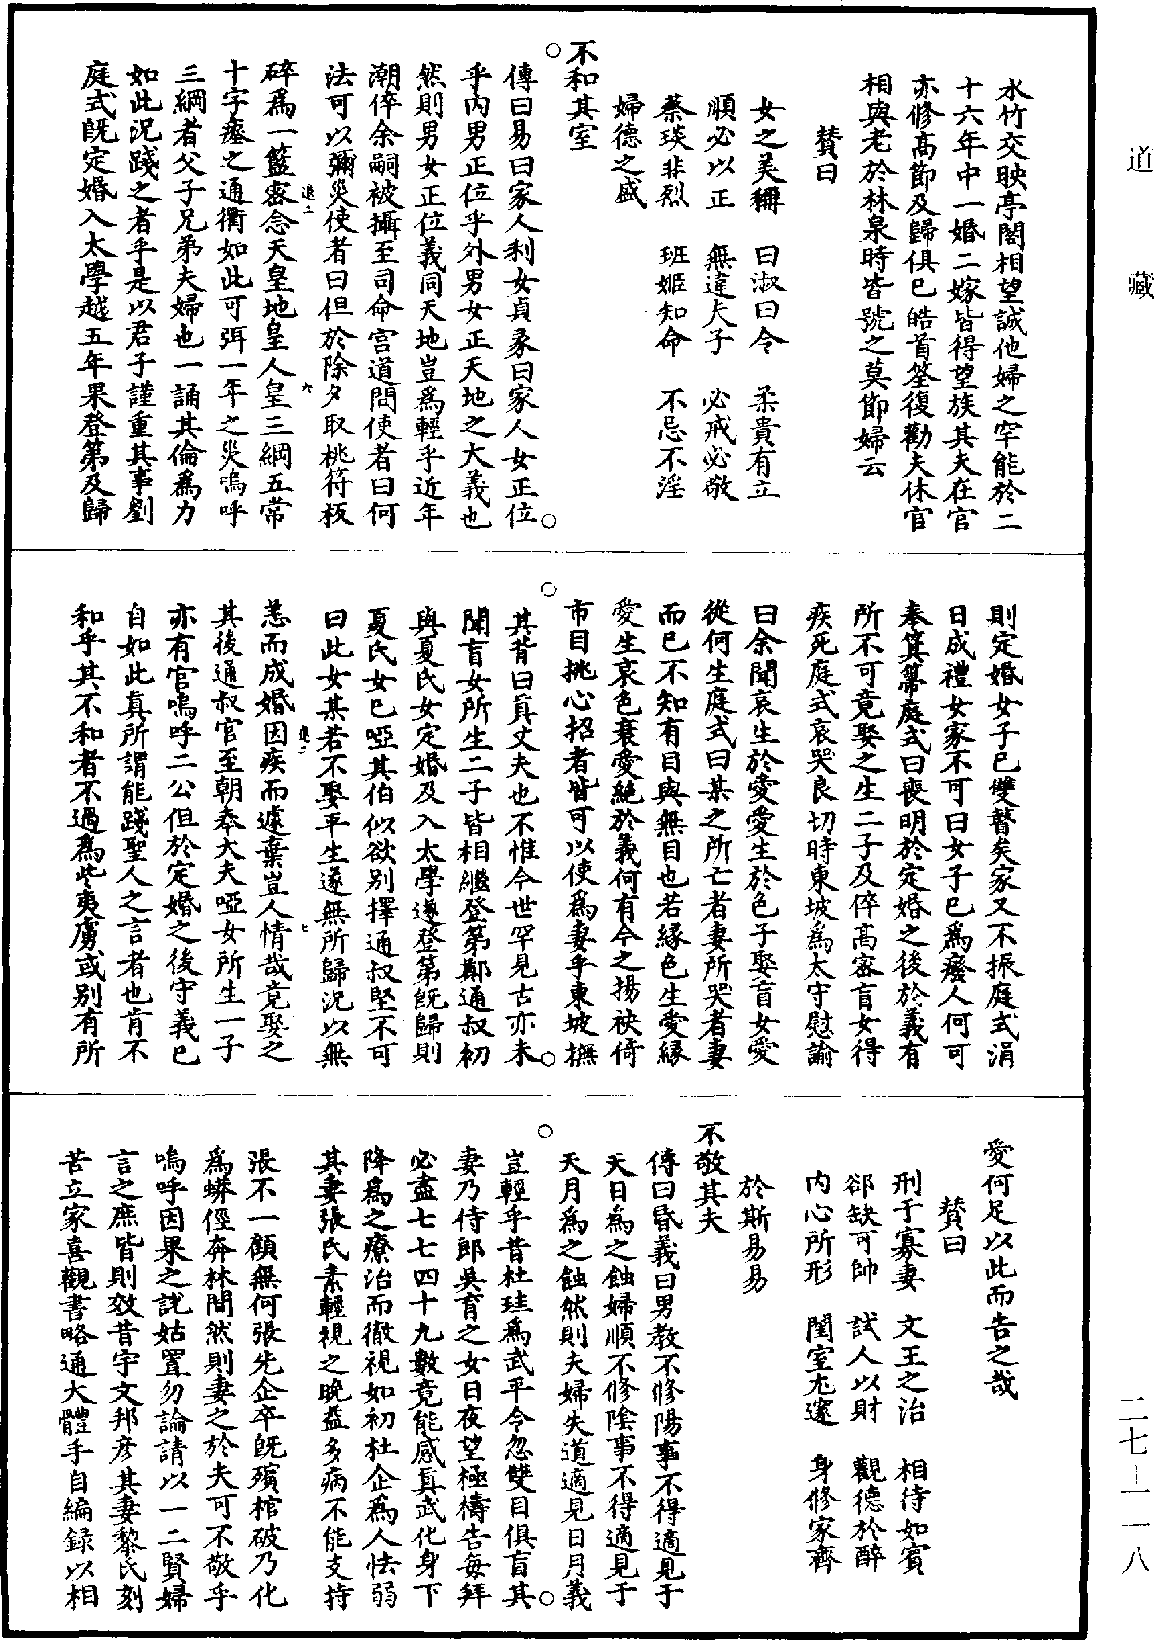 道藏
水竹交映亭閣相望誠他婦之罕能於二
十六年中一婚二嫁皆得望族其夫在官
亦修高節及歸俱已皓首筌復勸夫休官
相與老於林泉時皆號之莫節婦云
贊曰
女之美稱 曰淑曰令 柔貴有立
順必以正 無違夫子 必戒必敬
蔡琰非烈 班姬知命 不忌不淫
婦德之盛
不和其室
傳曰易曰家人利女貞彖曰家人女正位
乎內男正位乎外男女正天地之大義也
然則男女正位義同天地豈為輕乎近年
潮倅余嗣被攝至司命宫道問使者曰何
法可以彌災使者曰但於除夕取桃符板
碎為一籃密念天皇地皇人皇三綱五常
十字瘞之通衢如此可弭一年之災嗚呼
三綱者父子兄弟夫婦也一誦其倫為力
如此況踐之者乎是以君子謹重其事劉
庭式既定婚入太學越五年果登第及歸
則定婚女子已雙瞽矣家又不振庭式涓
日成禮女家不可曰女子已為癈人何可
奉箕箒庭式曰喪明於定婚之後於義有
所不可竟娶之生二子及倅高密盲女得
疾死庭式哀哭良切時東坡為太守慰諭
曰余聞哀生於愛愛生於色子娶盲女愛
從何生庭式曰某之所亡者妻所哭者妻
而已不知有目與無目也若緣色生愛緣
愛生哀色衰愛絕於義何有今之揚袂倚
市目挑心招者皆可以使為妻乎東坡撫
其背曰真丈夫也不惟今世罕見古亦未
聞盲女所生二子皆相繼登第鄭通叔初
與夏氏女定婚及入太學遂登第既歸則
夏氏女已啞其伯似欲别擇通叔堅不可
曰此女某若不娶平生遂無所歸況以無
恙而成婚因疾而遽棄豈人情哉竟娶之
其後通叔官至朝奉大夫啞女所生一子
亦有官嗚呼二公但於定婚之後守義已
自如此真所謂能踐聖人之言者也肯不
和乎其不和者不過為些夷虜或別有所
愛何足以此而告之哉
贊曰
刑于寡妻 文王之治 相待如賓
郤缺可帥 試人以財 觀德於醉
内心所形 閨室尤邃 身修家齊
於斯易易
不敬其夫
傳曰昏義曰男教不修陽事不得適見于
天日為之蝕婦順不修陰事不得適見于
天月為之蝕然則夫婦失道適見日月義
豈輕乎昔杜珪為武平令忽雙目俱盲其
妻乃侍郎吳育之女日夜望極禱告每拜
必盡七七四十九數竟能感真武化身下
降為之療治而徹視如初杜企為人怯弱
其妻張氏素輕視之晚益多病不能支持
張不一顧無何張先企卒既殯棺破乃化
為蟒徑奔林間然則妻之於夫可不敬乎
嗚呼因果之說姑置勿論請以一二賢婦
言之庶皆則效昔宇文邦彦其妻黎氏刻
苦立家喜觀書略通大體手自編錄以相
二七—一一八